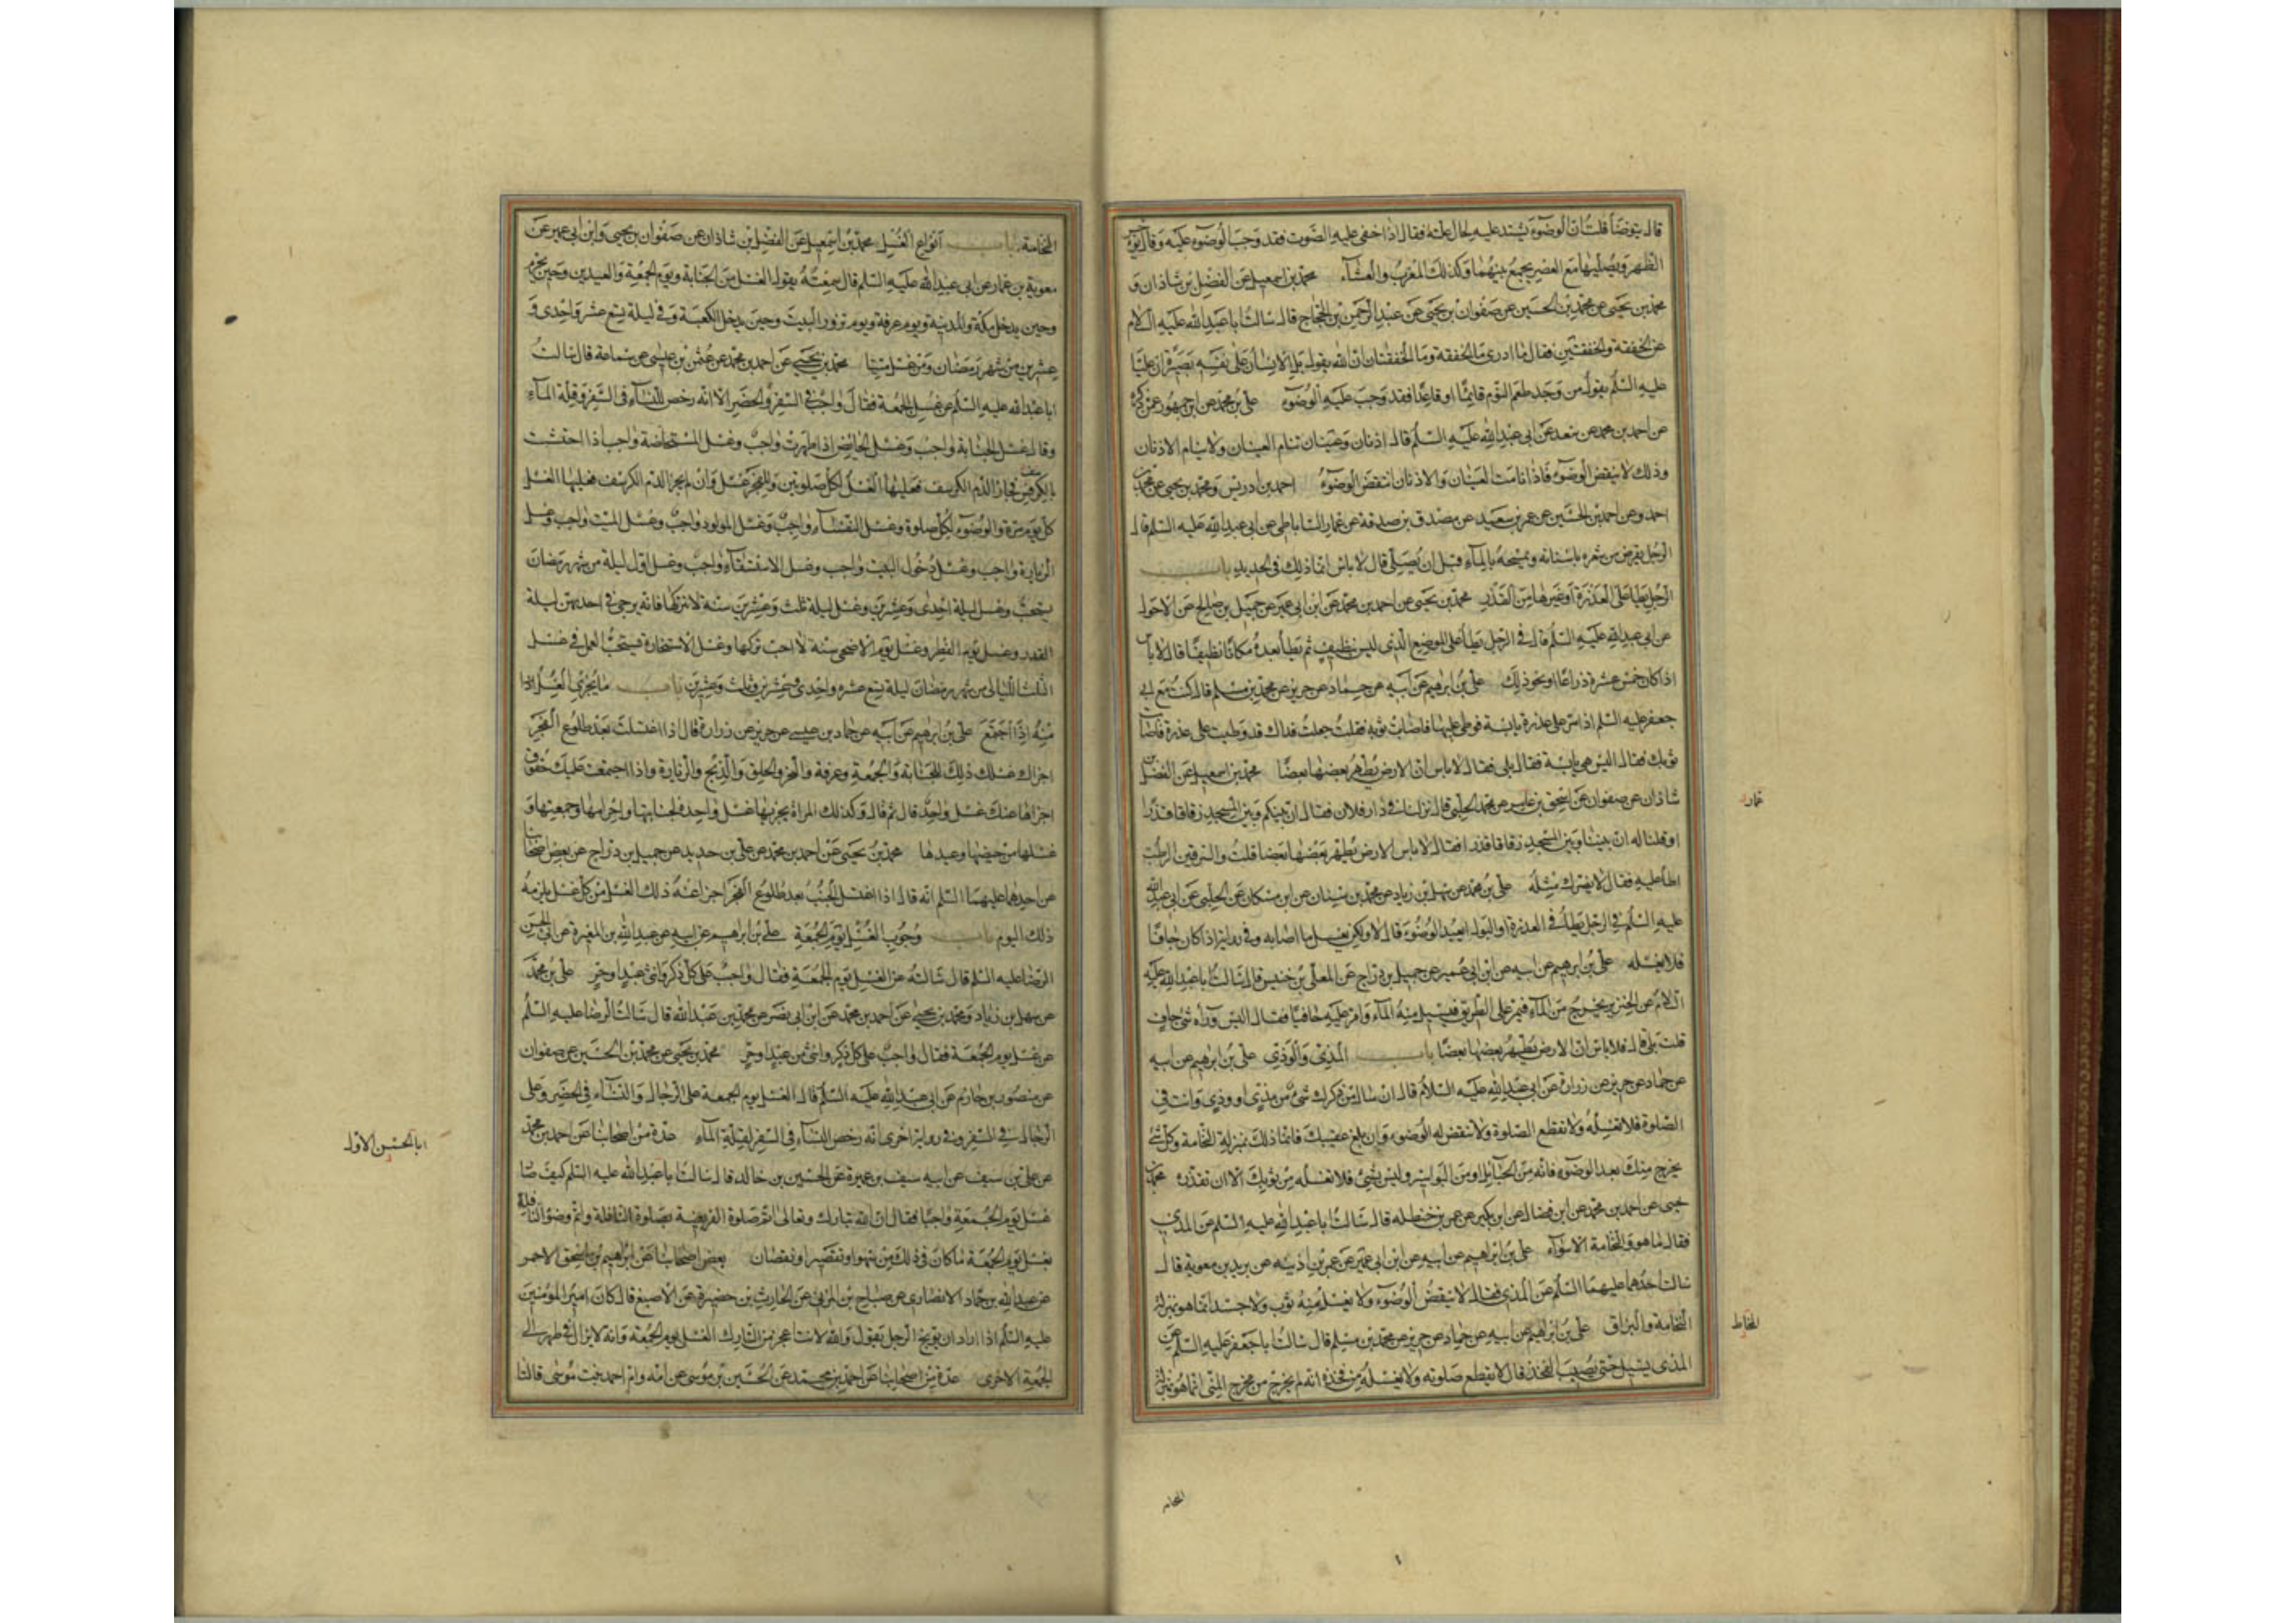 قال يتوضأ قلت ان الوضوء يشتد عليه لحال علته فقال اذا خفى عليه الصوت فقد وجب الوضوء عليه وقال يؤخر
الظهر ويصليها مع العصر يجمع بينهما وكذلك المغرب والعشاء محمد بن اسمعيل عن الفضل بن شاذان و
محمد بن يحيى عن محمد بن الحسين عن صفوان بن يحيى عن عبد الرحمن بن الحجاج قال سالت ابا عبد الله عليه السلام
عن الخفقة والخفقتين فقال ما ادرى ما الخفقة وما الخفقتان ان الله يقول بل الانسان على نفسه بصيرة ان عليا
عليه السلم يقول من وجد طعم النوم قائما او قاعدا فقد وجب عليه الوضوء على بن محمد عن ابن جمهور عمن ذكره
عن احمد بن محمد عن سعد عن ابى عبد الله عليه السلم قال اذنان وعينان تنام العينان ولا ينام الاذنان
وذلك لا ينقض الوضوء فاذا نامت العينان والاذنان انتقض الوضوء احمد بن ادريس ومحمد بن يحيى عن محمد بن
احمد وعن احمد بن الحسين عن عمر بن سعيد عن مصدق بن صدقة عن عمار الساباطى عن ابى عبد الله عليه السلم قال
الرجل يقرض من شعره باسنانه ويمسحه بالماء قبل ان يصلى قال لا باس انما ذلك فى الحديد باب
الرجل يطأ على العذرة او غيرها من القذر محمد بن يحيى عن احمد بن محمد عن ابن ابى عمير عن جميل بن صالح عن الاحول
عن ابى عبد الله عليه السلم قال فى الرجل يطأ على الموضع الذى ليس بنظيف ثم يطأ بعده مكانا نظيفا قال لا باس
اذا كان خمس عشرة ذراعا او نحو ذلك على بن ابرهيم عن ابيه عن حماد عن حريز عن محمد بن مسلم قال كنت مع ابى
جعفر عليه السلم اذ مر على عذرة يابسة فوطى عليها فاصابت ثوبه فقلت جعلت فداك قد وطيت على عذرة فاصابت
ثوبك فقال اليس هى يابسة فقال بلى فقال لا باس ان الارض يطهر بعضها بعضا محمد بن اسمعيل عن الفضل بن
شاذان عن صفوان عن اسحق بن عمار عن محمد الحلبى قال نزلنا فى دار فلان فقال ان بينكم وبين المسجد زقاقا قذرا
او قلنا له ان بيننا وبين المسجد زقاقا قذرا فقال لا باس الارض يطهر بعضها بعضا قلت والسرقين الرطب
اطأ عليه فقال لا يضرك مثله على بن محمد عن سهل بن زياد عن محمد بن سنان عن ابن مسكان عن الحلبى عن ابى عبد الله
عليه السلم فى الرجل يطأ فى العذرة او البول ايعيد الوضوء قال لا ولكن يغسل ما اصابه وفى رواية اذا كان جافا
فلا يغسله على بن ابرهيم عن ابيه عن ابن ابى عمير عن جميل بن دراج عن المعلى بن خنيس قال سالت ابا عبد الله عليه
السلام عن الخنزير يخرج من الماء فيمر على الطريق فيسيل منه الماء وامر عليه حافيا فقال اليس وراه شئ جاف
قلت بلى قال فلا باس ان الارض يطهر بعضها بعضا باب المذى والوذى على بن ابرهيم عن ابيه
عن حماد عن حريز عن زرارة عن ابى عبد الله عليه السلام قال ان سال من ذكرك شئ من مذى او وذى وانت فى
الصلوة فلا تغسله ولا تقطع الصلوة ولا تنقض له الوضوء وان بلغ عقبيك فانما ذلك بمنزلة النخامة وكل شئ
يخرج منك بعد الوضوء فانه من الحبائل او من البواسير وليس بشئ فلا تغسله من ثوبك الا ان تقذره محمد بن
يحيى عن احمد بن محمد عن ابن فضال عن ابن بكير عن عمر بن حنظله قال سالت ابا عبد الله عليه السلم عن المذى
فقال ما هو والنخامة الا سواء على بن ابراهيم عن ابيه عن ابن ابى عمير عن عمر بن اذينه عن بريد بن معوية قال
سالت احدهما عليهما السلم عن المذى فقال لا ينقض الوضوء ولا يغسل منه ثوب ولا جسد انما هو بمنزلة
النخامة والبزاق على بن ابراهيم عن ابيه عن حماد عن حريز عن محمد بن مسلم قال سالت ابا جعفر عليه السلم عن
المذى يسيل حتى يصيب الفخذ قال لا يقطع صلوته ولا يغسله من فخذه انه لم يخرج من مخرج المنى انما هو بمنزلة
عمار
المخاط
النخامة
النخامة باب انواع الغسل محمد بن اسمعيل عن الفضل بن شاذان عن صفوان بن يحيى وابن ابى عمير عن
معوية بن عمار عن ابى عبد الله عليه السلم قال سمعته يقول الغسل من الجنابة ويوم الجمعة والعيدين وحين يحرم
وحين يدخل مكة والمدينة ويوم عرفة ويوم تزور البيت وحين يدخل الكعبة وفى ليلة تسع عشر واحدى و
عشرين من شهر رمضان ومن غسل ميتا محمد بن يحيى عن احمد بن محمد عن عثمن بن عيسى عن سماعة قال سالت
ابا عبد الله عليه السلم عن غسل الجمعة فقال واجب فى السفر والحضر الا انه رخص للنساء فى السفر وقلة الماء
وقال غسل الجنابة واجب وغسل الحائض اذا طهرت واجب وغسل المستحاضة واجب اذا احتشت
بالكرسف فجاز الدم الكرسف فعليها الغسل لكل صلوتين وللفجر غسل وان لم يجز الدم الكرسف فعليها الغسل
كل يوم مرة والوضوء لكل صلوة وغسل النفساء واجب وغسل المولود واجب وغسل الميت واجب وغسل
الزيارة واجب وغسل دخول البيت واجب وغسل الاستسقاء واجب وغسل اول ليلة من شهر رمضان
يستحب وغسل ليلة احدى وعشرين وغسل ليلة ثلث وعشرين سنة لا تتركها فانه يرجى فى احديهن ليلة
القدر وغسل يوم الفطر وغسل يوم الاضحى سنة لا احب تركها وغسل الاستخارة فيستحب العمل فى غسل
الثلث الليالى من شهر رمضان ليلة تسع عشره واحدى وعشرين وثلث وعشرين باب ما يجزى الغسل
منه اذا اجتمع على بن ابرهيم عن ابيه عن حماد بن عيسى عن حريز عن زرارة قال اذا اغتسلت بعد طلوع الفجر
اجزاك غسلك ذلك للجنابة والجمعة وعرفة والنحر والحلق والذبح والزيارة واذا اجتمعت عليك حقوق
اجزاها عنك غسل واحد قال ثم قال وكذلك المراة يجزيها غسل واحد لجنابتها واحرامها وجمعتها و
غسلها من حيضها وعيدها محمد بن يحيى عن احمد بن محمد عن على بن حديد عن جميل بن دراج عن بعض اصحابنا
عن احدهما عليهما السلم انه قال اذا اغتسل الجنب بعد طلوع الفجر اجزا عنه ذلك الغسل من كل غسل يلزمه
ذلك اليوم باب وجوب الغسل يوم الجمعة على بن ابراهيم عن ابيه عن عبد الله بن المغيرة عن ابى الحسن
الرضا عليه السلم قال سالته عن الغسل يوم الجمعة فقال واجب على كل ذكر وانثى عبد او حر على بن محمد
عن سهل بن زياد ومحمد بن يحيى عن احمد بن محمد عن ابن ابى نصر عن محمد بن عبد الله قال سالت الرضا عليه السلم
عن غسل يوم الجمعة فقال واجب على كل ذكر وانثى من عبد او حر محمد بن يحيى عن محمد بن الحسين عن صفوان
عن منصور بن حازم عن ابى عبد الله عليه السلم قال الغسل يوم الجمعة على الرجال والنساء فى الحضر وعلى
الرجال فى السفر وفى رواية اخرى انه رخص للنساء فى السفر لقلة الماء عدة من اصحابنا عن احمد بن محمد
عن على بن سيف عن ابيه سيف بن عميرة عن الحسين بن خالد قال سالت ابا عبد الله عليه السلم كيف صار
غسل يوم الجمعة واجبا فقال ان الله تبارك وتعالى اتم صلوة الفريضة بصلوة النافلة واتم وضوء النافلة
بغسل يوم الجمعة ما كان فى ذلك من سهو او تقصير او نقصان بعض اصحابنا عن ابراهيم بن اسحق الاحمر
عن عبد الله بن حماد الانصارى عن صباح بن المزنى عن الحارث بن حضيرة عن الاصبغ قال كان امير المؤمنين
عليه السلم اذا اراد ان يوبخ الرجل يقول والله لانت اعجز من التارك الغسل يوم الجمعة وانه لا يزال فى طهر الى
الجمعة الاخرى عدة من اصحابنا عن احمد بن محمد عن الحسين بن موسى عن امه وام احمد بنت موسى قالتا
ابا الحسن الاول